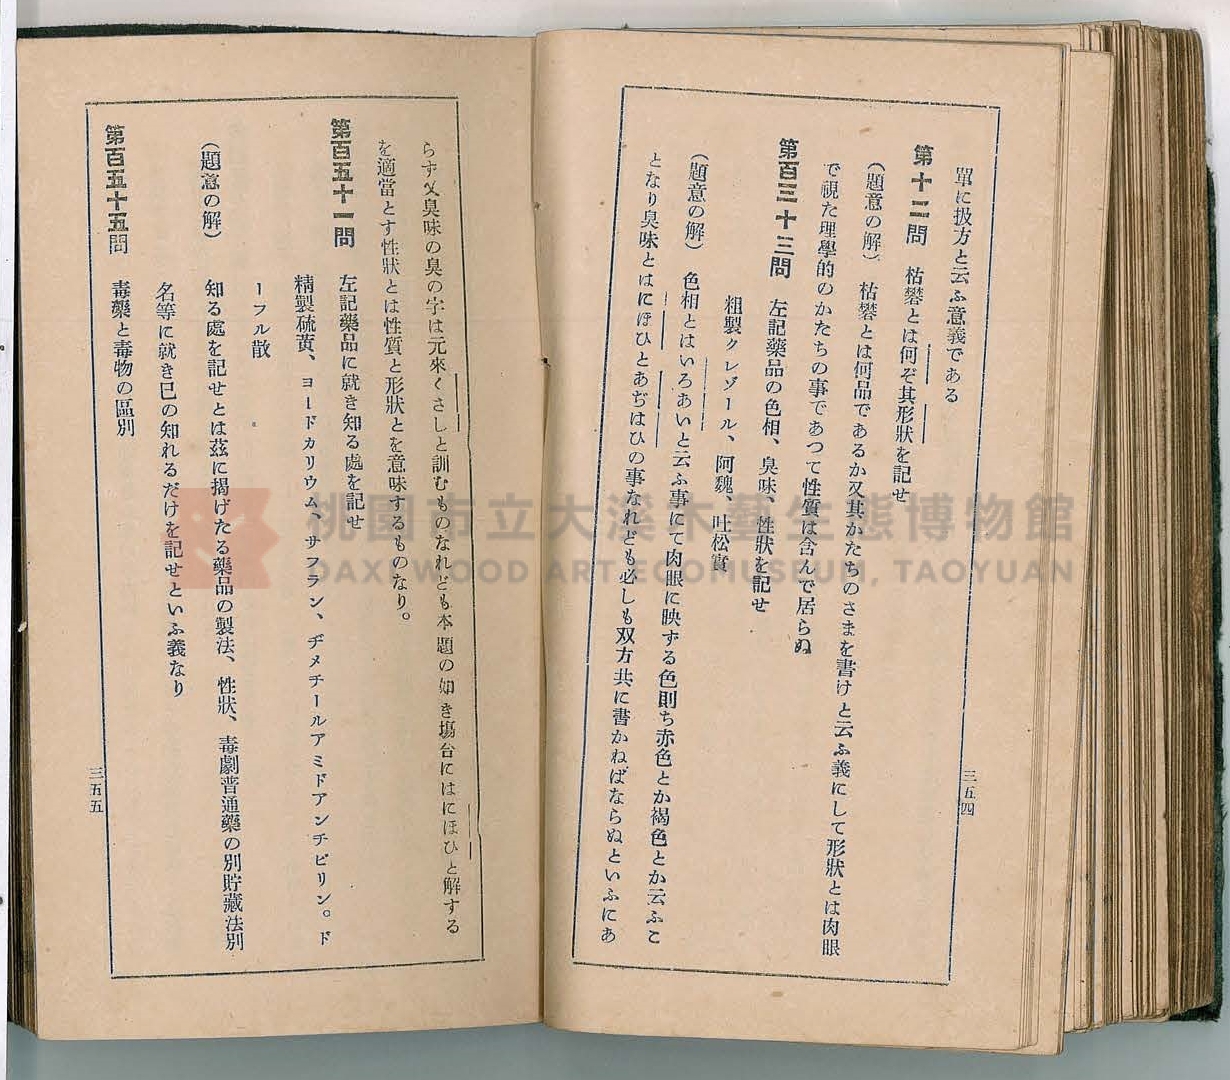 單に扱方と云ふ意義である
第十二問 枯礬とは何ぞ其形狀を記せ
(題意の解) 枯礬とは何品であるか又其かたちのさまを書けと云ふ義にして形狀とは肉眼
で視た理學的のかたちの事であつて性質は含んで居らぬ
第百三十三問 左記藥品の色相、臭味、性狀を記せ
粗製クレゾール、阿魏、吐松實
(題意の解) 色相とはいろあいと云ふ事にて肉眼に映ずる色則ち赤色とか褐色とか云ふこ
となり臭味とはにほひとあぢはひの事なれども必しも双方共に書かねばならぬといふにあ
三五四
らず又臭味の臭の字は元來くさしと訓むものなれども本題の如き塲合にはにほひと解する
を適當とす性狀とは性質と形狀とを意味するものなり。
第百五十一問 左記藥品に就き知る處を記せ
精製硫黃、ヨードカリウム、サフラン、ヂメチールアミドアンチピリン。ド
ーフル散
(題意の解) 知る處を記せとは茲に揭げたる藥品の製法、性狀、毒劇普通藥の別貯藏法別
名等に就き已の知れるだけを記せといふ義なり
第百五十五問 毒藥と毒物の區別
三五五
桃園市立大溪木藝生態博物館
DAXI WOOD ART ECOMUSEUM, TAOYUAN